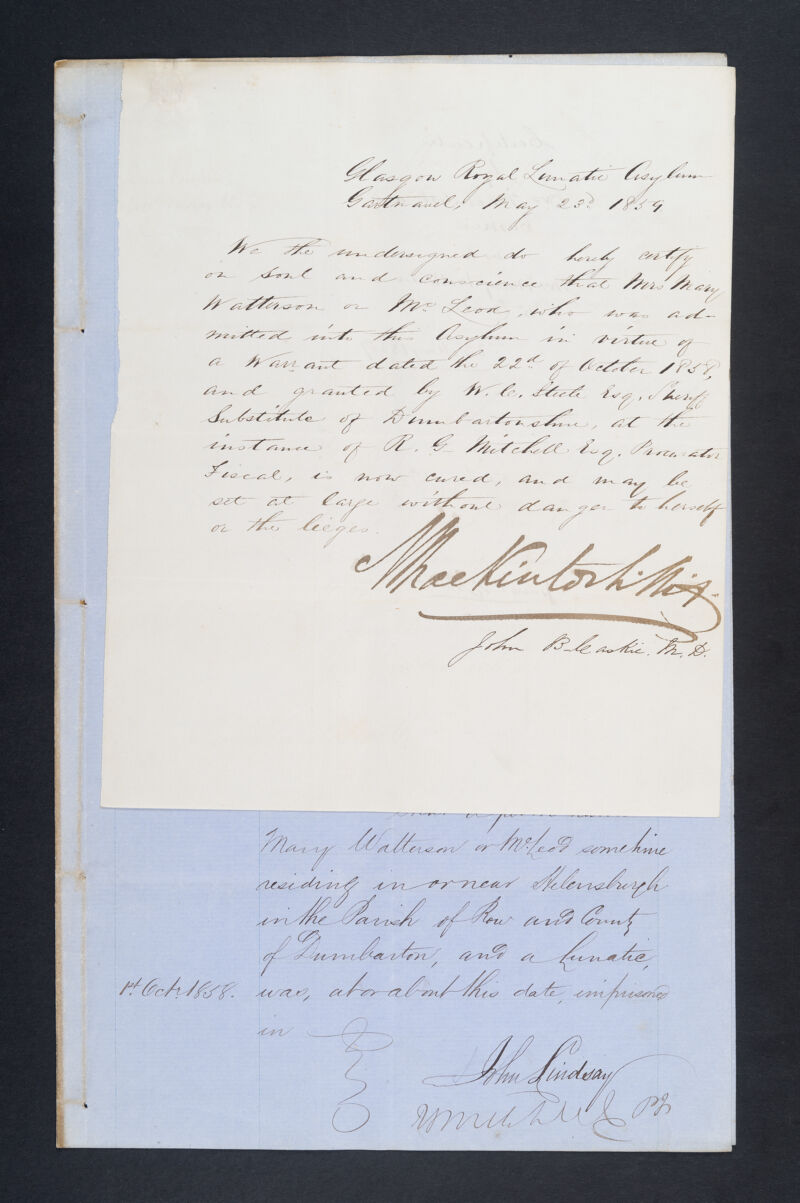 Glasgow Royal Lunatic Asylum
Gartnavel, May 23d 1859
We the undersigned do hereby certify
on soul and conscience that Mrs Mary
Watterson or McLeod, who was ad-
mitted into this Asylum in virtue of
a Warrant dated the 22d of October 1858,
and granted by W. C. Steele Esq. Sheriff
Substitute of Dumbartonshire, at the
instance of R. G Mitchell Esq. Procurator
Fiscal, is now cured, and may be
set at large without danger to herself
or the lieges.
Mackintosh
John M. D.
Mary Watterson or McLeod sometime
residing in or near Helensburgh
in the Parish of Row and County
of Dumbarton, and a Lunatic,
1st Octr 1858. was, at or about this date, imprisoned
in
John Lindsay